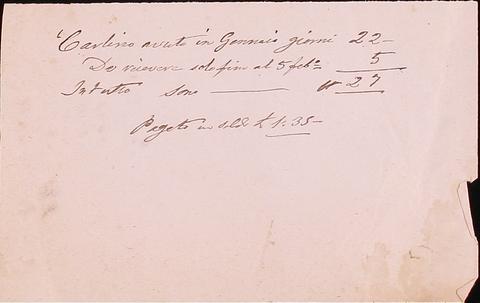 Carlino avuto in Gennaio giorni 22-
Da ricevere solo fino al 5 febº 5
In tutto sono —— nº 27
Pagato in soldi £ 1:35-